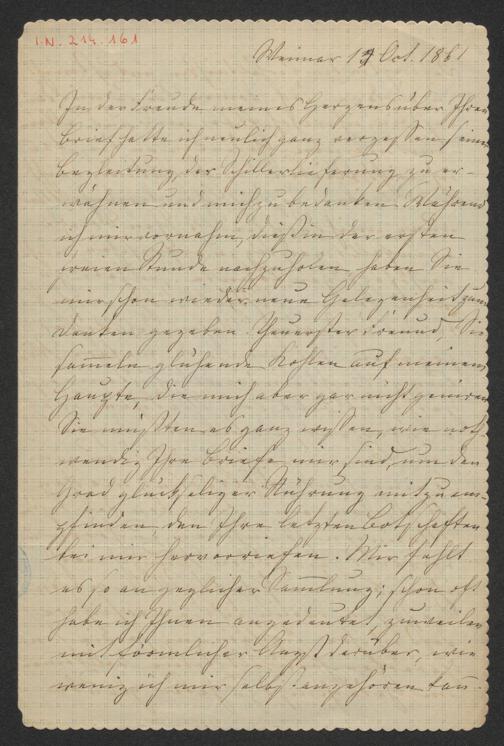 I.N. 214.161
Weimar 19 Oct. 1861
In der Freude meines Herzens über Ihren
Brief hatte ich neulich ganz vergessen seiner
Begleitung der Schillerlieferung zu er-
wähnen und mich zu bedanken. Während
ich mir vornahm, dieß in der ersten
freien Stunde nachzuholen, haben Sie
mir schon wieder neue Gelegenheit zum
Danken gegeben. Theuerster Freund, Sie
sam̄eln glühende Kohlen auf meinem
Haupte, die mich aber gar nicht geniren
Sie müßten es ganz wissen, wie noth-
wendig Ihre Briefe mir sind, um den
Grad glückseliger Rührung mitzuem-
pfinden, den Ihre letzten Botschaften
bei mir hervorriefen. Mir fehlt
es so an jeglicher Sam̄lung; schon oft
habe ich Ihnen angedeutet, zuweilen
mit förmlicher Angst darüber, wie
wenig ich mir selbst angehören kan̄.